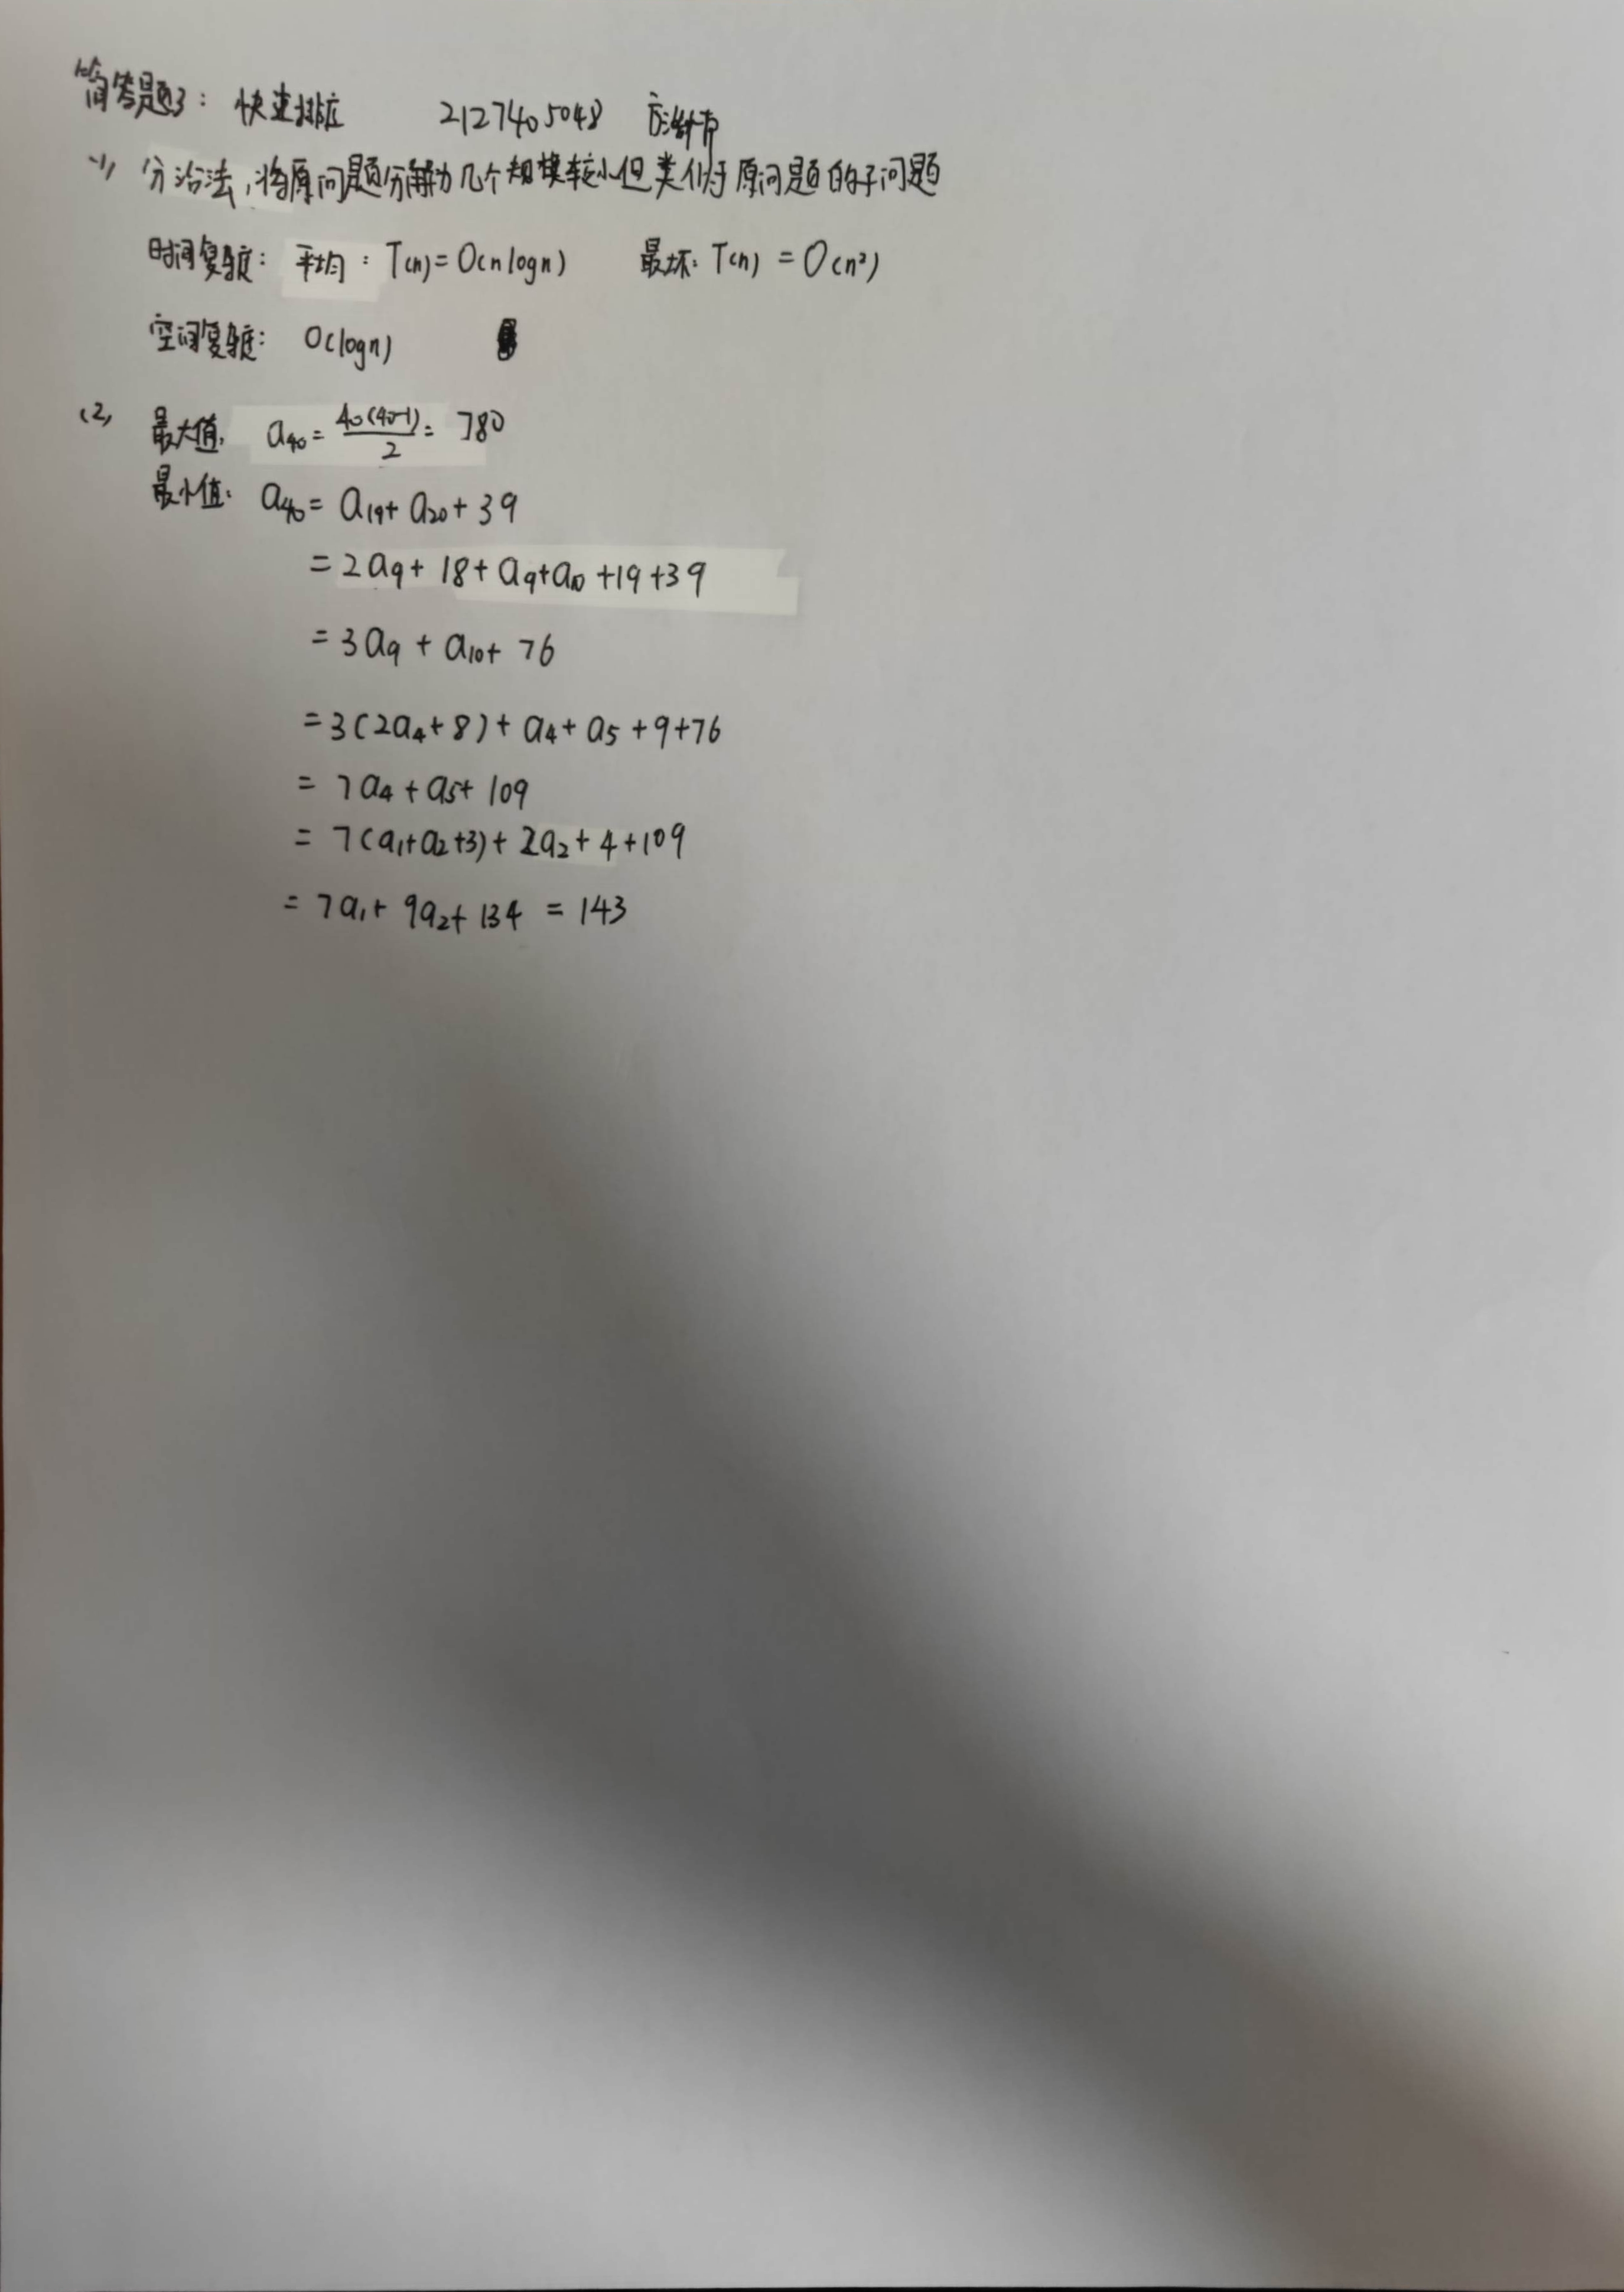 简答题3: 快速排序 2127405048 方
(1) 分治法,将原问题分解为几个规模较小但类似于原问题的子问题
时间复杂度: 平均: T(n)=O(nlogn) 最坏: T(n)=O(n²)
空间复杂度: O(logn)
(2) 最大值: a₄₀ = 40(40-1)/2 = 780
最小值: a₄₀ = a₁₉+ a₂₀+ 39
= 2a₉+ 18+ a₉+a₁₀ +19+39
= 3a₉ + a₁₀+ 76
= 3(2a₄+8)+ a₄+ a₅ +9+76
= 7a₄ + a₅+ 109
= 7(a₁+a₂+3)+ 2a₂+ 4+109
= 7a₁+ 9a₂+ 134 = 143